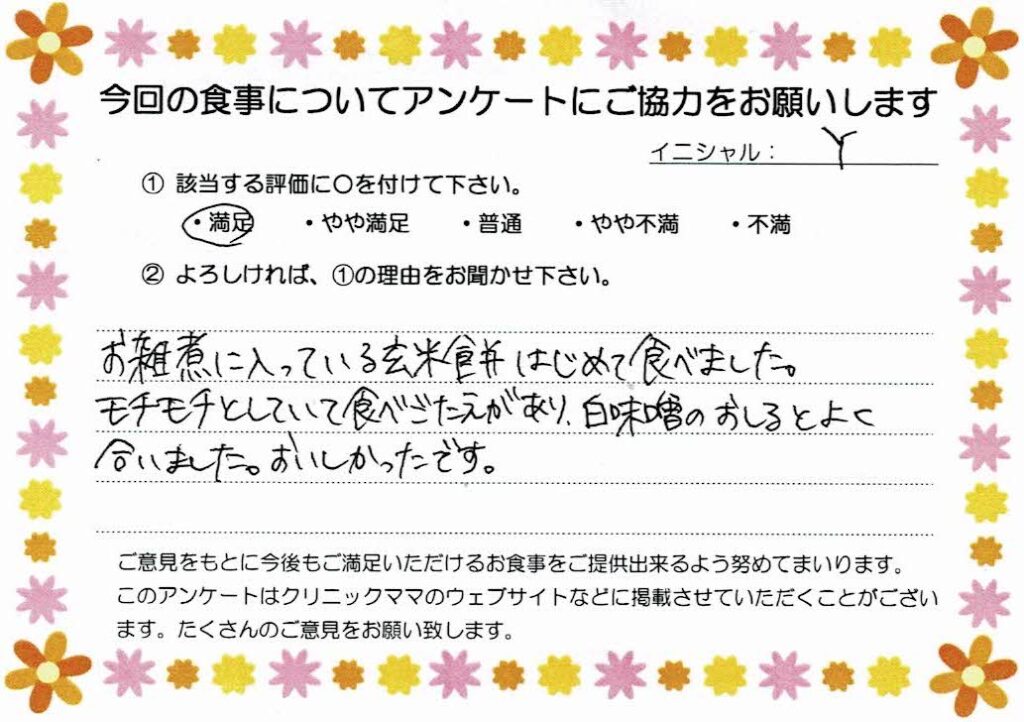 今回の食事についてアンケートにご協力をお願いします
イニシャル： Y
① 該当する評価に〇を付けて下さい。
・満足 ・やや満足 ・普通 ・やや不満 ・不満
② よろしければ、①の理由をお聞かせ下さい。
お雑煮に入っている玄米餅はじめて食べました。
モチモチとしていて食べごたえがあり、白味噌のおしるとよく
合いました。おいしかったです。
ご意見をもとに今後もご満足いただけるお食事をご提供出来るよう努めてまいります。
このアンケートはクリニックママのウェブサイトなどに掲載させていただくことがござい
ます。たくさんのご意見をお願い致します。